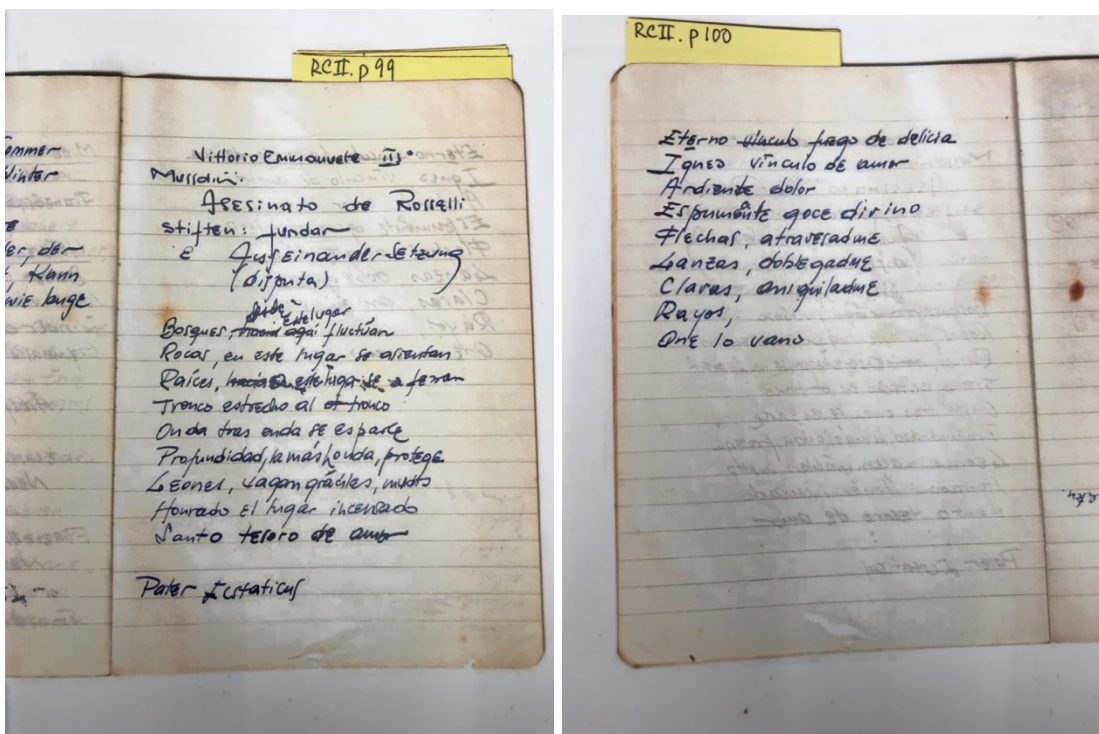 RCII. p 99
ommer
Vittorio Emmanuele III
Mussolini:
Asesinato de Rosselli
stiften: fundar
é Auseinandersetzung
(disputa)
der, der
Kann
wie lange
este lugar
Bosques, hacia aquí fluctúan
Rocas, en este lugar se asientan
Raíces, hacia este lugar se a ferran
Tronco estrecho al tronco
Onda tras onda se esparce
Profundidad, la más honda, protege
Leones, vagan gráciles, mudos
Honrado el lugar incensado
Santo tesoro de amor
Pater Ecstaticus
RCII. p 100
Eterno vínculo fuego de delicia
Igneo vínculo de amor
Ardiente dolor
Espumante goce divino
Flechas, atravesadme
Lanzas, doblegadme
Clavas, aniquiladme
Rayos,
Que lo vano